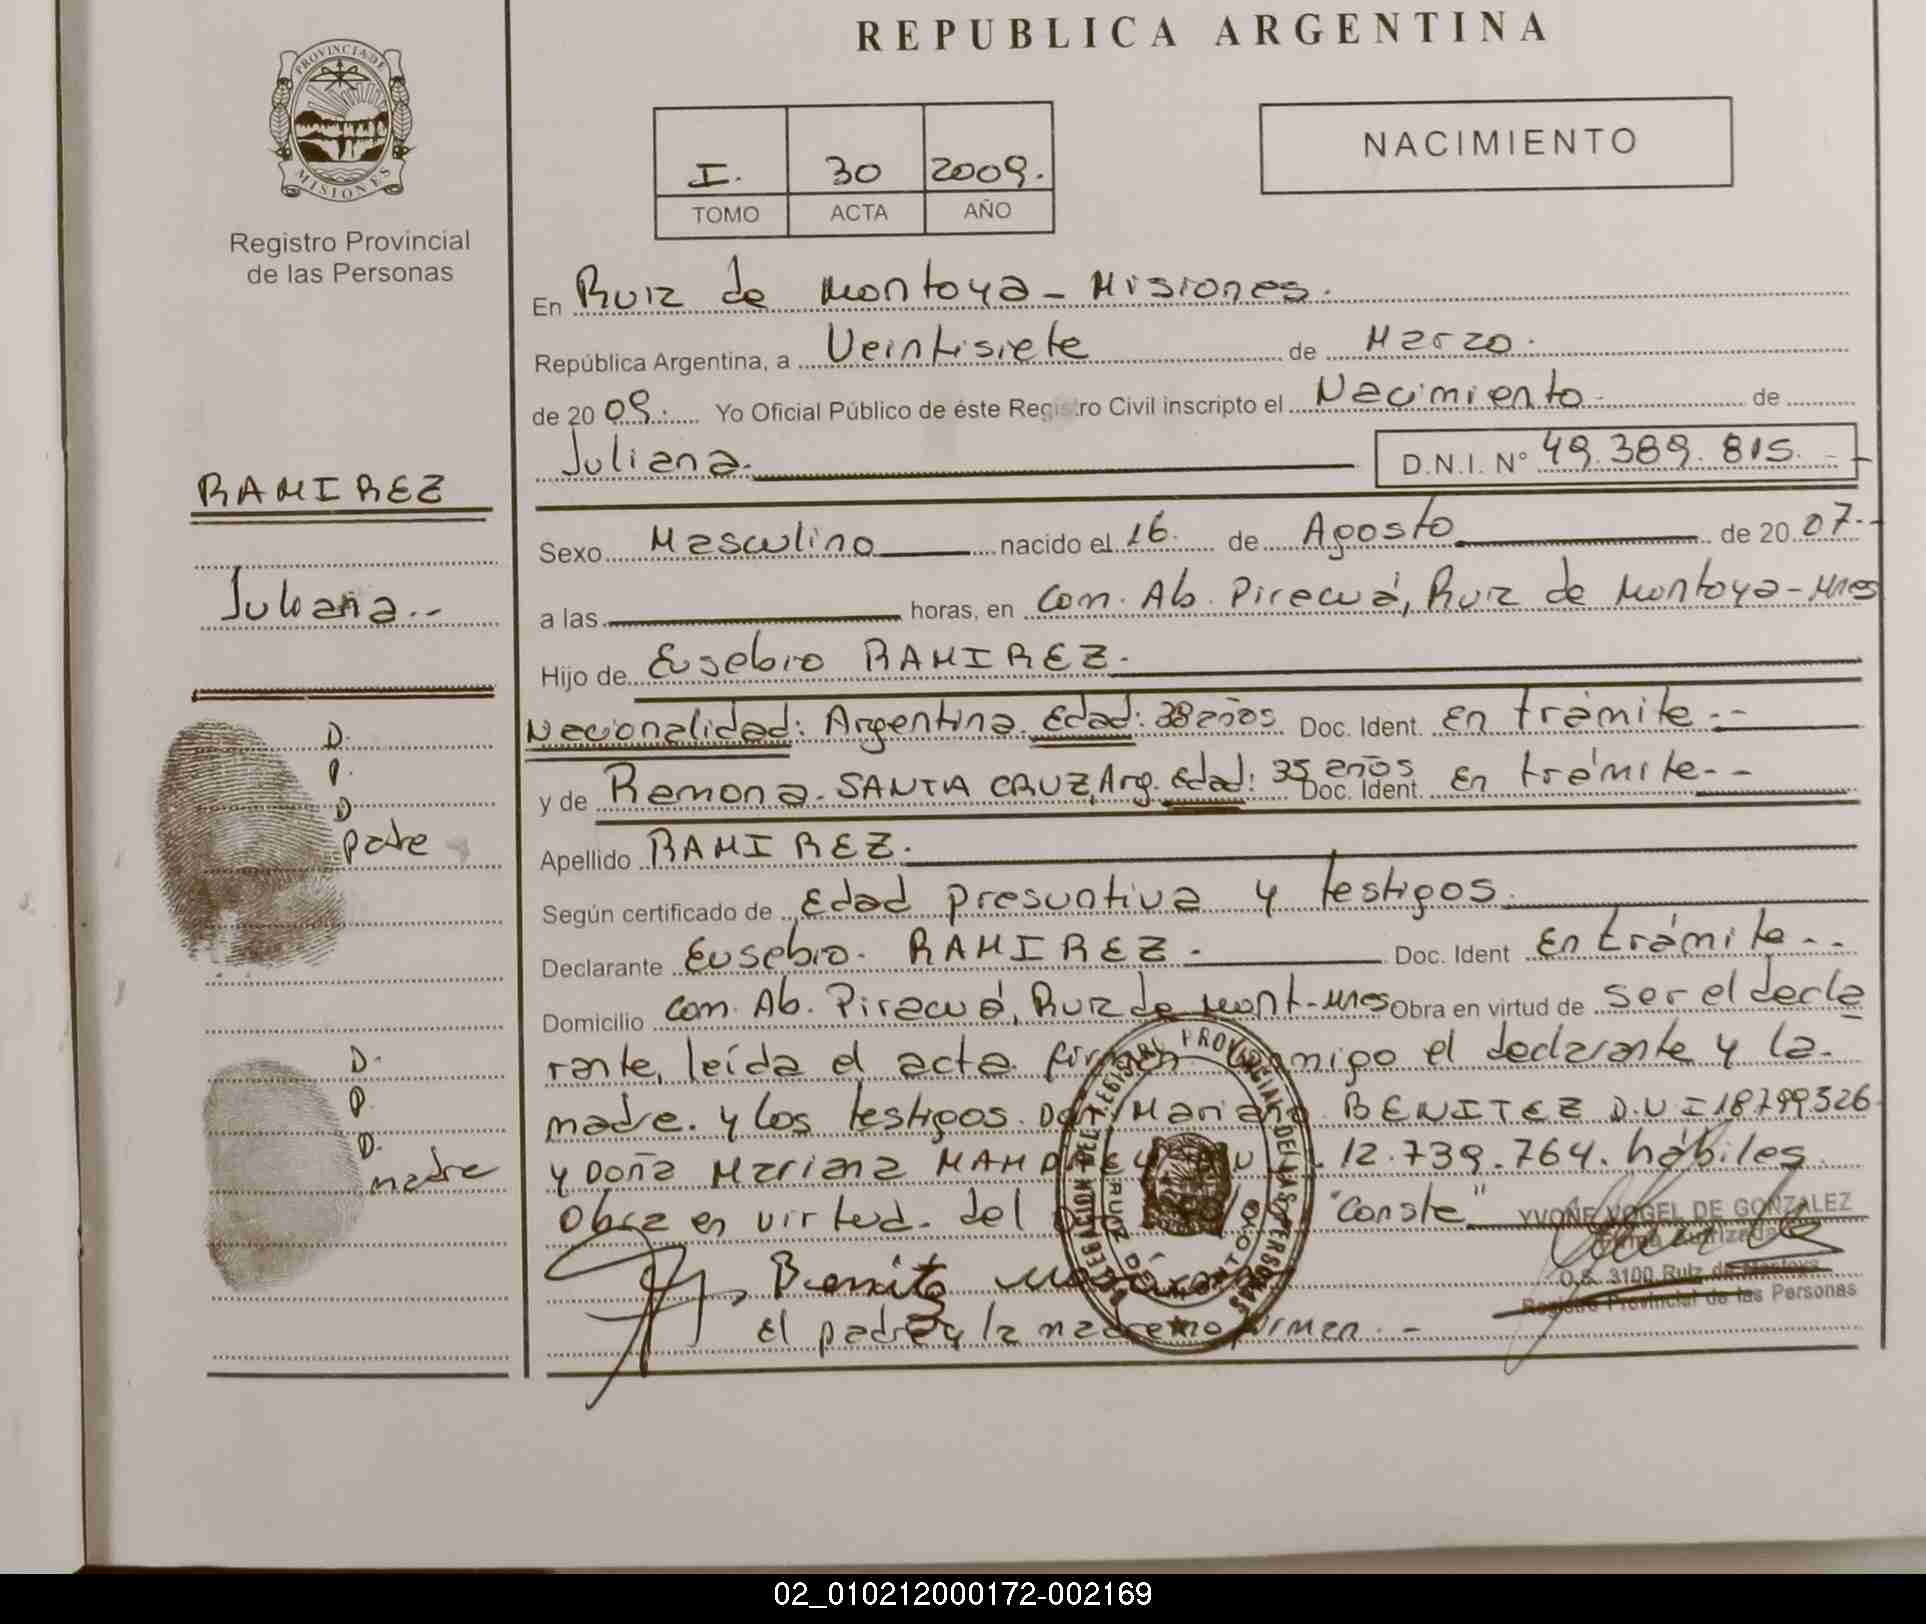 REPUBLICA ARGENTINA
PROVINCIA DE
MISIONES
Registro Provincial
de las Personas
I. 30 2009.
TOMO ACTA AÑO
NACIMIENTO
En Ruiz de Montoya - Misiones.
República Argentina, a Veintisiete de Marzo.
de 20 09. Yo Oficial Público de éste Registro Civil inscripto el Nacimiento de
Juliana. D.N.I. Nº 49.389.815.
RAMIREZ
Juliana.-
Sexo Masculino nacido el 16. de Agosto de 20 07.-
a las horas, en Com. Ab. Piracuá, Ruiz de Montoya - Mnes
Hijo de Eusebio RAMIREZ.
Nacionalidad: Argentina. Edad: 38 años Doc. Ident. En trámite.-
y de Ramona. SANTA CRUZ, Arg. Edad: 35 años Doc. Ident. En trámite.-
Apellido RAMIREZ.
Según certificado de Edad presuntiva y testigos.
Declarante Eusebio. RAMIREZ. Doc. Ident En trámite..
Domicilio Com. Ab. Piracuá, Ruiz de Mont-Mnes Obra en virtud de ser el decla
rante, leída el acta firman conmigo el declarante y la.
madre. y los testigos. Don Mariano BENITEZ D.N.I 18.799.526
y Doña Mariana 12.739.764. hábiles
Obra en virtud. del "Conste"
Benitez
el padre y la madre no firman.-
D.
P.
D
padre
D.
P.
D.
madre
DELEGACION DEL REGISTRO PROVINCIAL DE LAS PERSONAS
RUIZ DE MONTOYA
YVONE VOGEL DE GONZALEZ
Firma Autorizada
O.S. 3100 Ruiz de Montoya
Registro Provincial de las Personas
02_010212000172-002169